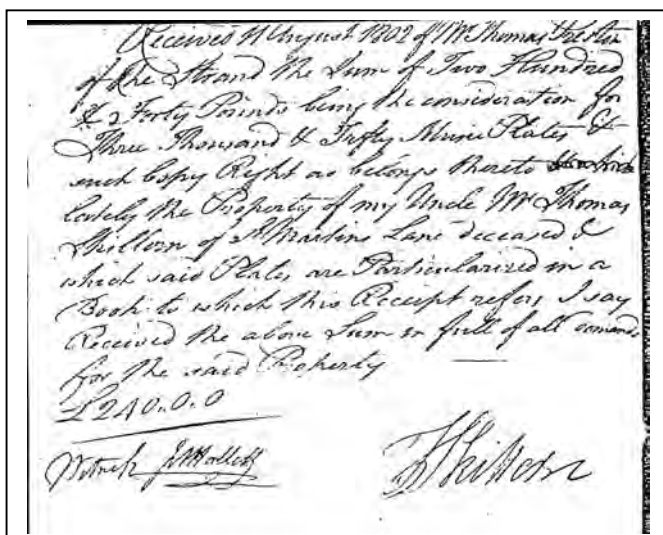 Received August 1802 of Mr Thomas Preston
of the Strand the Sum of Two Hundred
& Forty Pounds being the consideration for
Three Thousand & Fifty Music Plates &
such Copy Right as belongs thereto
lately the Property of my Uncle Mr Thomas
Skillern of St Martins Lane deceased &
which said Plates are Particularized in a
Book to which this Receipt refers I say
Received the above Sum in full of all
for the said Property
£240.0.0
Skillern